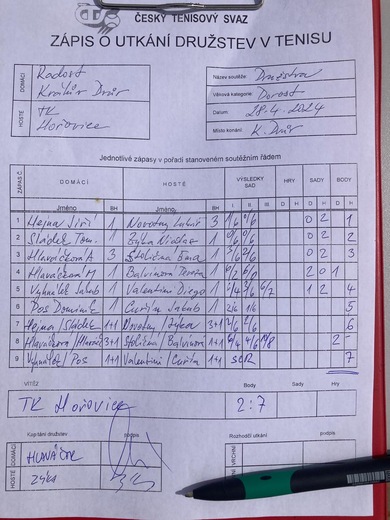 ČESKÝ TENISOVÝ SVAZ
ZÁPIS O UTKÁNÍ DRUŽSTEV V TENISU
DOMÁCÍ Radost
Králův Dvůr
HOSTÉ TK
Hořovice
Název soutěže: Družstva
Věková kategorie: Dorost
Datum: 28.4.2024
Místo konání: K. Dvůr
Jednotlivé zápasy v pořadí stanoveném soutěžním řádem
ZÁPAS Č. DOMÁCÍ HOSTÉ VÝSLEDKY SAD HRY SADY BODY
Jméno BH Jméno BH I. II. III. D H D H D H
1 Hejna Jiří 1 Novotný 3 1/6 0/6 0 2 1
2 Sládek Tom. 1 Zýka 1 0/6 0/6 0 2 2
3 Hlaváčková A 3 Stolička Ema 1 3/6 2/6 0 2 3
4 Hlaváčková M 1 Balvínová Tereza 1 6/2 6/0 2 0 1
5 Vyhnálek Jakub 1 Valentini Diego 1 6/4 3/6 6/7 1 2 4
6 Pos Dominik 1 Cuřín Jakub 1 2/6 1/6 5
7 Hejna/Sládek 1+1 Novotný/Zýka 3+1 2/6 2/6 6
8 Hlaváčková/Hlaváč 3+1 Stolička/Balvínová 1+1 6/4 4/6 2 -
9 Vyhnálek/Pos 1+1 Valentini/Cuřín 1+1 SCR 7
VÍTĚZ Body Sady Hry
TK Hořovice 2:7
Kapitáni družstev podpis Rozhodčí utkání. podpis
DOMÁCÍ HLAVÁČEK VRCHNÍ
HOSTÉ Zýka